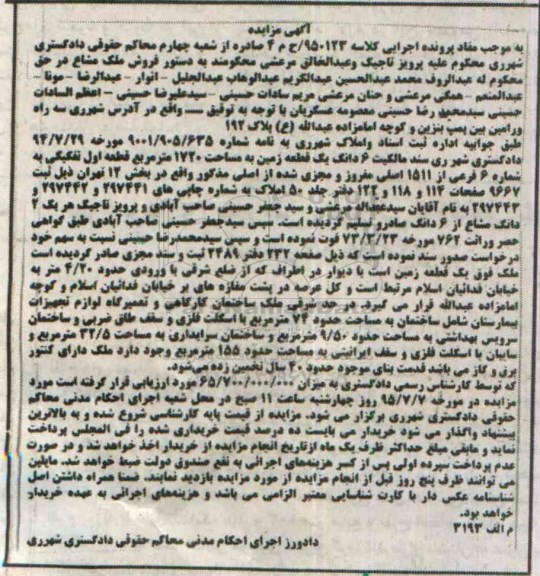 آگهی مزایده
به موجب مفاد پرونده اجرایی کلاسه ۹۵۰۱۲۳/ج م ۴ صادره از شعبه چهارم محاکم حقوقی دادگستری
شهرری محکوم علیه پرویز تاجیک وعبدالخالق مرعشی محکومند به دستور فروش ملک مشاع در حق
محکوم له عبدالروف محمد عبدالحسین عبدالکریم عبدالوهاب عبدالجلیل - انوار - عبدالرضا - مونا -
عبدالمنعم - همگی مرعشی و حنان مرعشی مریم سادات حسینی - سیدعلیرضا حسینی - اعظم السادات
حسینی سیدمحمد رضا حسینی معصومه عسگریان با توجه به توقیف واقع در آدرس شهرری سه راه
ورامین بین پمپ بنزین و کوچه امامزاده عبدالله (ع) پلاک ۱۹۲
طبق جوابیه اداره ثبت اسناد واملاک شهرری به نامه شماره ۹۰۰۱/۹۰۵/۶۳۵ مورخه ۹۴/۷/۲۹
دادگستری شهر ری سند مالکیت ۶ دانک یک قطعه زمین به مساحت ۱۷۲۰ مترمربع قطعه اول تفکیکی به
شماره ۶ فرعی از ۱۵۱۱ اصلی مفروز و مجزی شده از اصلی مذکور واقع در بخش ۱۲ تهران ذیل ثبت
۹۶۶۷ صفحات ۱۱۴ و ۱۱۸ و ۱۲۲ دفتر جلد ۵۰ املاک به شماره چاپی های ۲۹۷۴۴۱ و ۲۹۷۴۴۲ و
۲۹۷۴۴۳ به نام آقایان سیدعبدالله مرعشی و سید جعفر حسینی صاحب آبادی و پرویز تاجیک هر یک ۲
دانک مشاع از ۶ دانک صادرو تسلیم گردیده است. سپس سیدجعفر حسینی صاحب آبادی طبق گواهی
حصر وراثت ۷۶۲ مورخه ۷۳/۲/۲۳ فوت نموده است و سپس سیدمحمدرضا حسینی نسبت به سهم خود
درخواست صدور سند نموده است که ذیل صفحه ۲۳۲ دفتر ۲۴۸۹ ثبت و سند مجزی صادر گردیده است
ملک فوق یک قطعه زمین است با دیوار در اطراف که از ضلع شرقی با ورودی حدود ۴/۲۰ متر به
خیابان فدائیان اسلام مرتبط است و کل عرصه در پشت مغازه های بر خیابان فدائیان اسلام و کوچه
امامزاده عبدالله قرار می گیرد. در حد شرقی ملک ساختمان کارگاهی و تعمیرگاه لوازم تجهیزات
بیمارستان شامل ساختمان به مساحت حدود ۷۴ مترمربع با اسکلت فلزی و سقف طاق ضربی و ساختمان
سرویس بهداشتی به مساحت حدود ۹/۵۰ مترمربع و ساختمان سرایداری به مساحت ۳۲/۵ مترمربع و
سایبان با اسکلت فلزی و سقف ایرانیتی به مساحت حدود ۱۵۵ مترمربع وجود دارد ملک دارای کنتور
برق و گاز می باشد قدمت بنای موجود حدود ۴۰ سال تخمین زده می‌شود.
که توسط کارشناس رسمی دادگستری به میزان ۶۵/۷۰۰/۰۰۰/۰۰۰ مورد ارزیابی قرار گرفته است مورد
مزایده در مورخه ۹۵/۷/۷ روز چهارشنبه ساعت ۱۱ صبح در محل شعبه اجرای احکام مدنی محاکم
حقوقی دادگستری شهرری برگزار می شود. مزایده از قیمت پایه کارشناسی شروع شده و به بالاترین
پیشنهاد واگذار می شود خریدار می بایست ده درصد قیمت خریداری شده را فی المجلس پرداخت
نماید و مابقی مبلغ حداکثر ظرف یک ماه ازتاریخ انجام مزایده از خریدار اخذ خواهد شد و در صورت
عدم پرداخت سپرده اولی پس از کسر هزینه‌های اجرائی به نفع صندوق دولت ضبط خواهد شد. مایلین
می توانند ظرف پنج روز قبل از انجام مزایده از مورد مزایده بازدید نمایند. ضمنا همراه داشتن اصل
شناسنامه عکس دار با کارت شناسایی معتبر الزامی می باشد و هزینه‌های اجرائی به عهده خریدار
خواهد بود.
م الف ۳۱۹۳
دادورز اجرای احکام مدنی محاکم حقوقی دادگستری شهرری